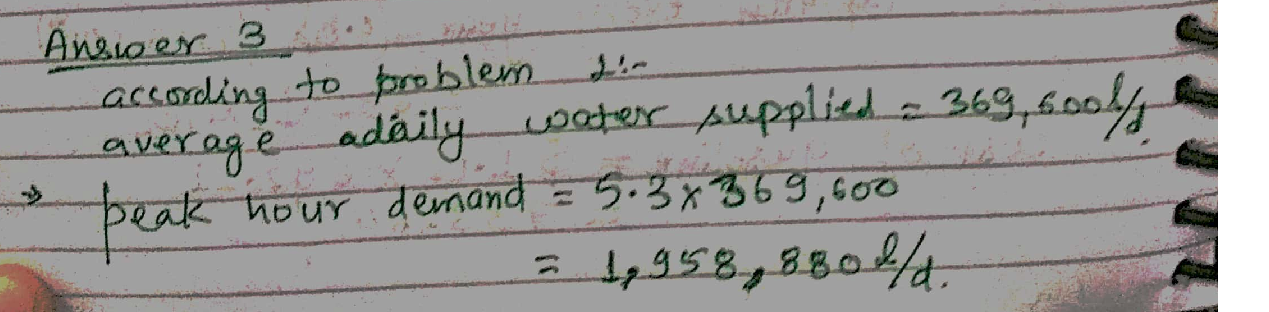 Answer 3
according to problem 2:-
average adaily water supplied = 369,600 l/d.
⇒ peak hour demand = 5.3 x 369,600
= 1,958,880 l/d.